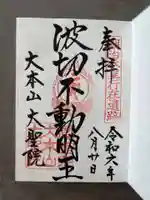 奉拝
令和六年
八月廿日
波切不動明王
大本山 大聖院